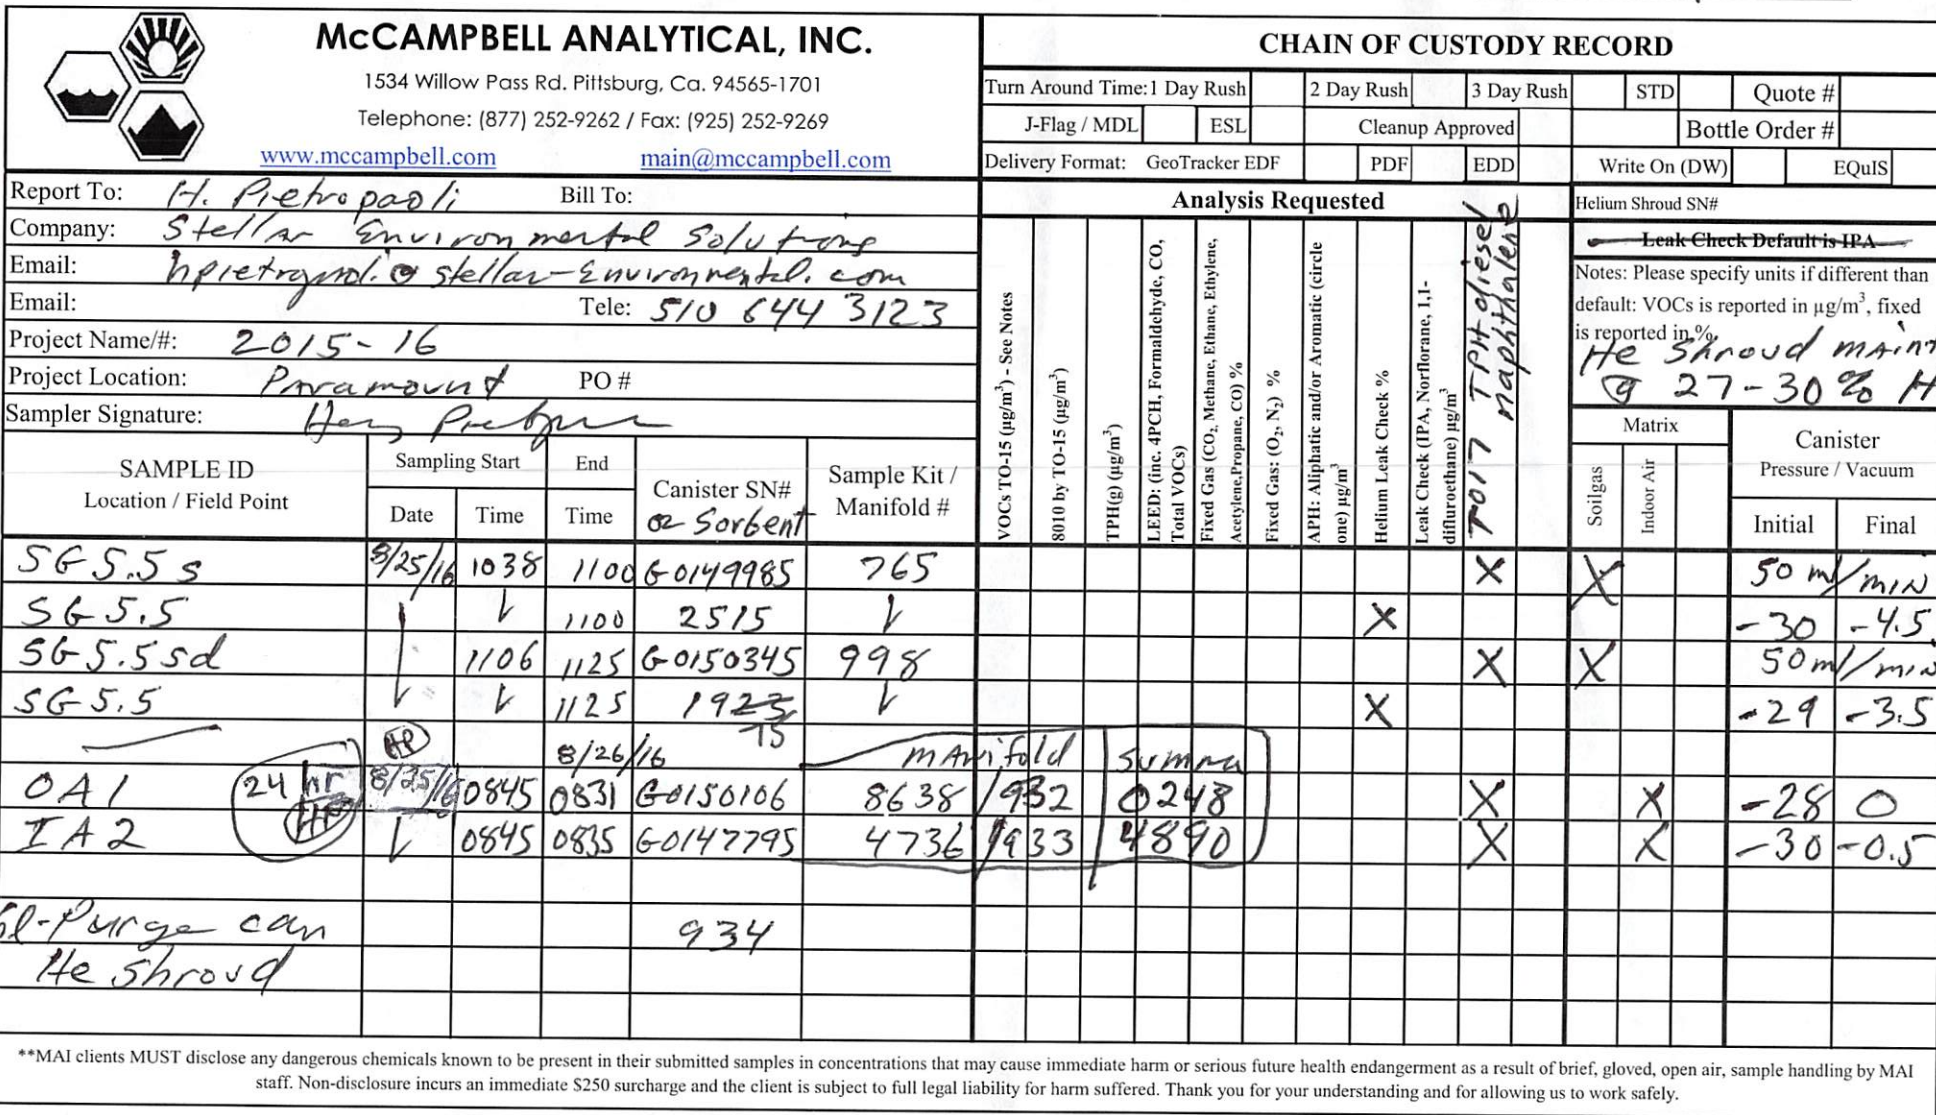 McCAMPBELL ANALYTICAL, INC.
1534 Willow Pass Rd. Pittsburg, Ca. 94565-1701
Telephone: (877) 252-9262 / Fax: (925) 252-9269
www.mccampbell.com main@mccampbell.com
CHAIN OF CUSTODY RECORD
Turn Around Time: 1 Day Rush 2 Day Rush 3 Day Rush STD Quote #
J-Flag / MDL ESL Cleanup Approved Bottle Order #
Delivery Format: GeoTracker EDF PDF EDD Write On (DW) EQuIS
Report To: H. Pietropaoli Bill To:
Company: Stellar Environmental Solutions
Email: hpietropaoli@stellar-Environmental.com
Email: Tele: 510 644 3123
Project Name/#: 2015-16
Project Location: Paramount PO #
Sampler Signature:
Analysis Requested
Helium Shroud SN#
Leak Check Default is IPA
Notes: Please specify units if different than
default: VOCs is reported in µg/m³, fixed
is reported in %.
He Shroud MAINT
@ 27-30% H
VOCs TO-15 (µg/m³) - See Notes
8010 by TO-15 (µg/m³)
TPH(g) (µg/m³)
LEED: (inc. 4PCH, Formaldehyde, CO,
Total VOCs)
Fixed Gas (CO₂, Methane, Ethane, Ethylene,
Acetylene,Propane, CO) %
Fixed Gas: (O₂, N₂) %
APH: Aliphatic and/or Aromatic (circle
one) µg/m³
Helium Leak Check %
Leak Check (IPA, Norflorane, 1,1-
difluroethane) µg/m³
TO17 TPHdiesel
naphthalene
Matrix
Soilgas
Indoor Air
Canister
Pressure / Vacuum
Initial Final
SAMPLE ID
Location / Field Point
Sampling Start End
Date Time Time
Canister SN#
or Sorbent
Sample Kit /
Manifold #
SG5.5s 8/25/16 1038 1100 G0149985 765 X X 50 ml/min
SG5.5 1100 2515 X -30 -4.5
SG5.5sd 1106 1125 G0150345 998 X X 50ml/min
SG5.5 1125 1923 X -29 -3.5
HP 8/26/16 75 MAnifold Summa
OA1 24 hr 8/25/16 0845 0831 G0150106 8638/932 0248 X X -28 0
IA2 HP 0845 0835 G0147795 4736/933 4890 X X -30 -0.5
Purge can 934
He Shroud
**MAI clients MUST disclose any dangerous chemicals known to be present in their submitted samples in concentrations that may cause immediate harm or serious future health endangerment as a result of brief, gloved, open air, sample handling by MAI
staff. Non-disclosure incurs an immediate $250 surcharge and the client is subject to full legal liability for harm suffered. Thank you for your understanding and for allowing us to work safely.